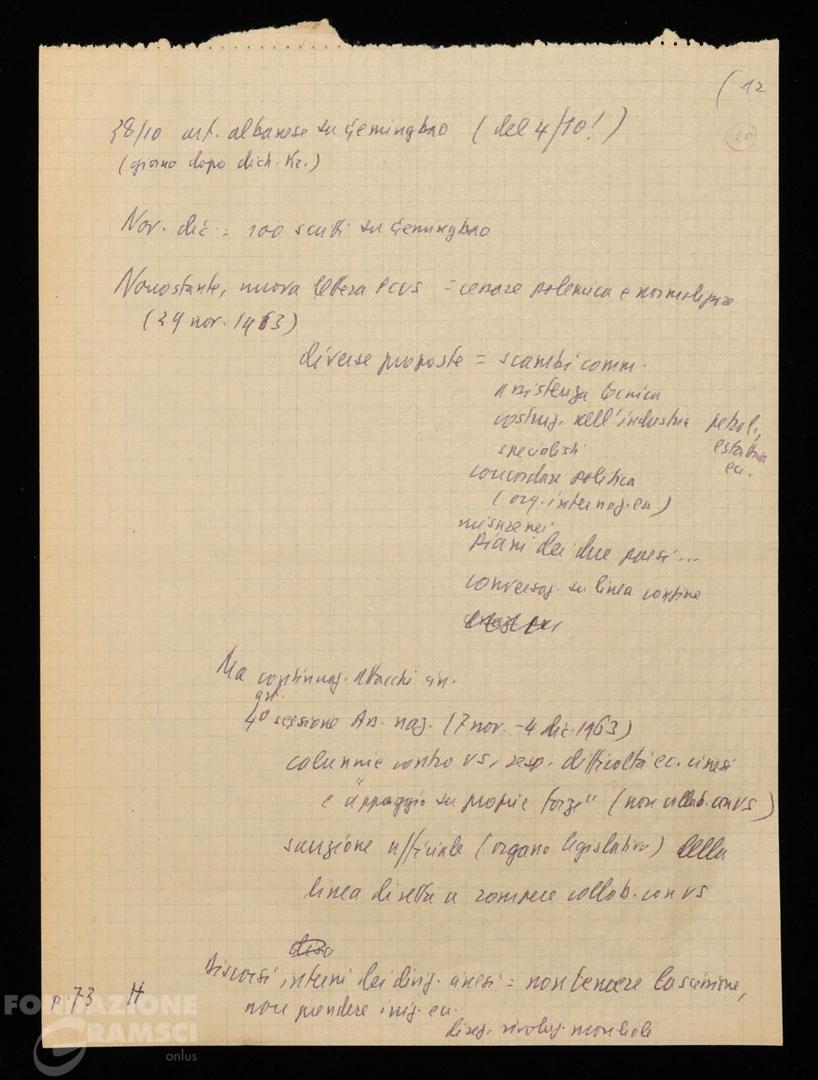 ( 12
20
28/10 art. albanese su Genmingbao ( del 4/10! )
(giorno dopo dich. Kr.)
Nov. dic = 100 scritti su Genmingbao
Nonostante, nuova lettera PCUS = cessare polemica e normalizzare
(29 nov. 1963)
diverse proposte = scambi comm.
assistenza tecnica
costruz. nell'industria petrol.,
estrattiva
ec.
specialisti
concordare politica
(org. internaz. ec.)
misure nei
piani dei due paesi...
conversaz. su linea confine
Ma continuaz. attacchi cin.
4° sessione Ass. naz. (17 nov. - 4 dic. 1963)
calunnie contro US, resp. difficoltà ec. cinesi
e "appoggio su proprie forze" (non collab. con US)
sanzione ufficiale (organo legislativo) della
linea diretta a rompere collab. con US
Discorsi interni dei dirig. cinesi = non temere la scissione,
non prendere iniz. ec.
direz. rivoluz. mondiale
p. 73 H
FONDAZIONE
GRAMSCI
onlus